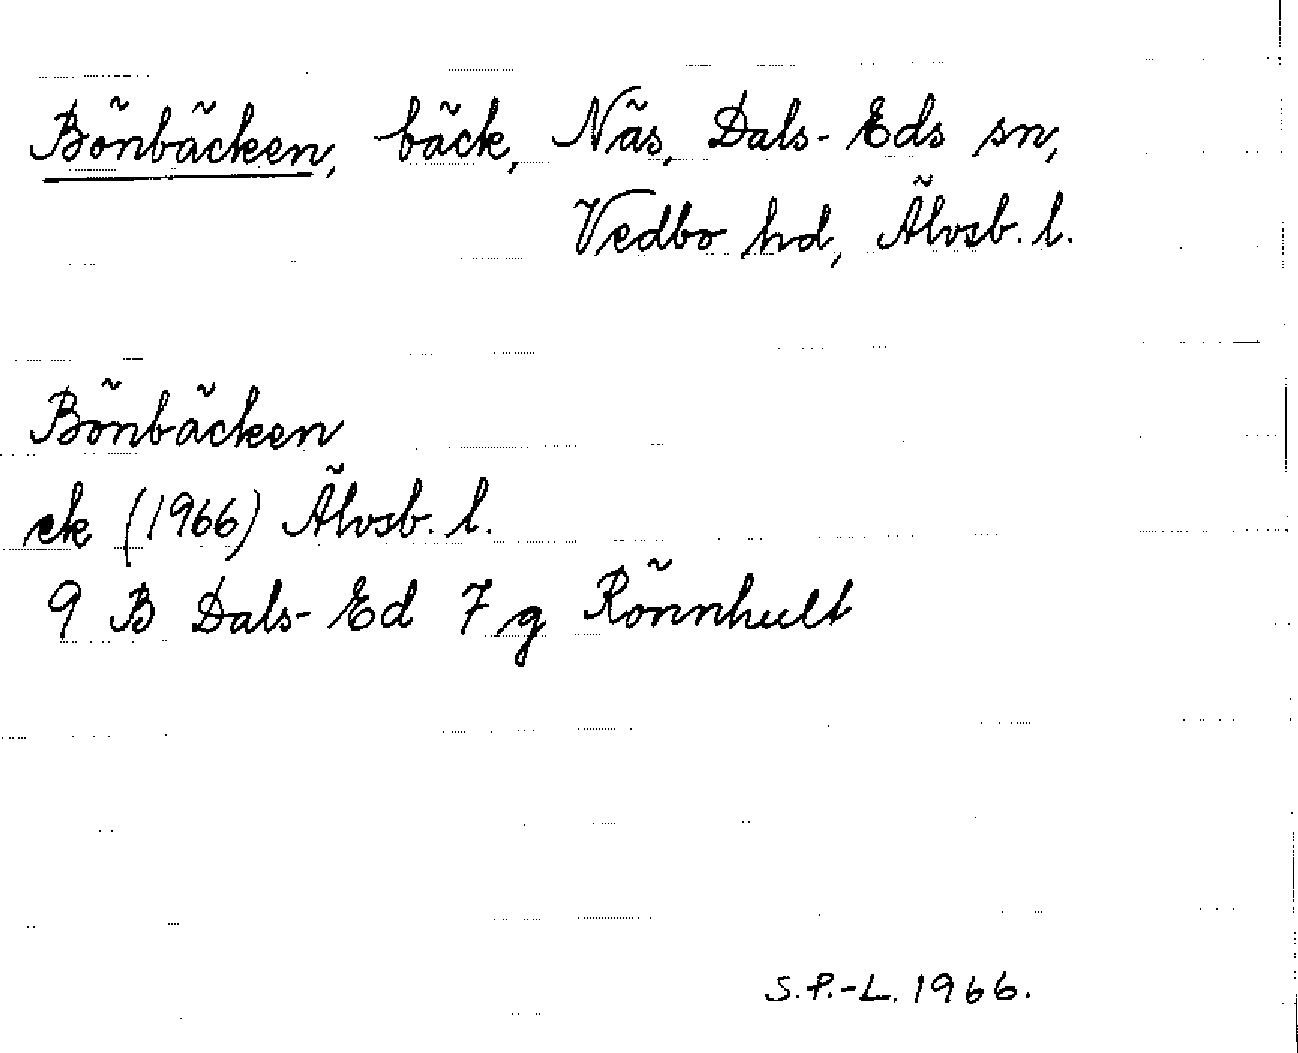 Bönbäcken, bäck, Näs, Dals-Eds sn,
Vedbo hd, Älvsb. l.
Bönbäcken
ek (1966) Älvsb. l.
9 B Dals-Ed 7 g Rönnhult
S.P.-L. 1966.